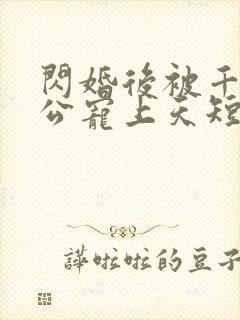 閃婚後被千
公寵上天短
譁啦啦的豆子